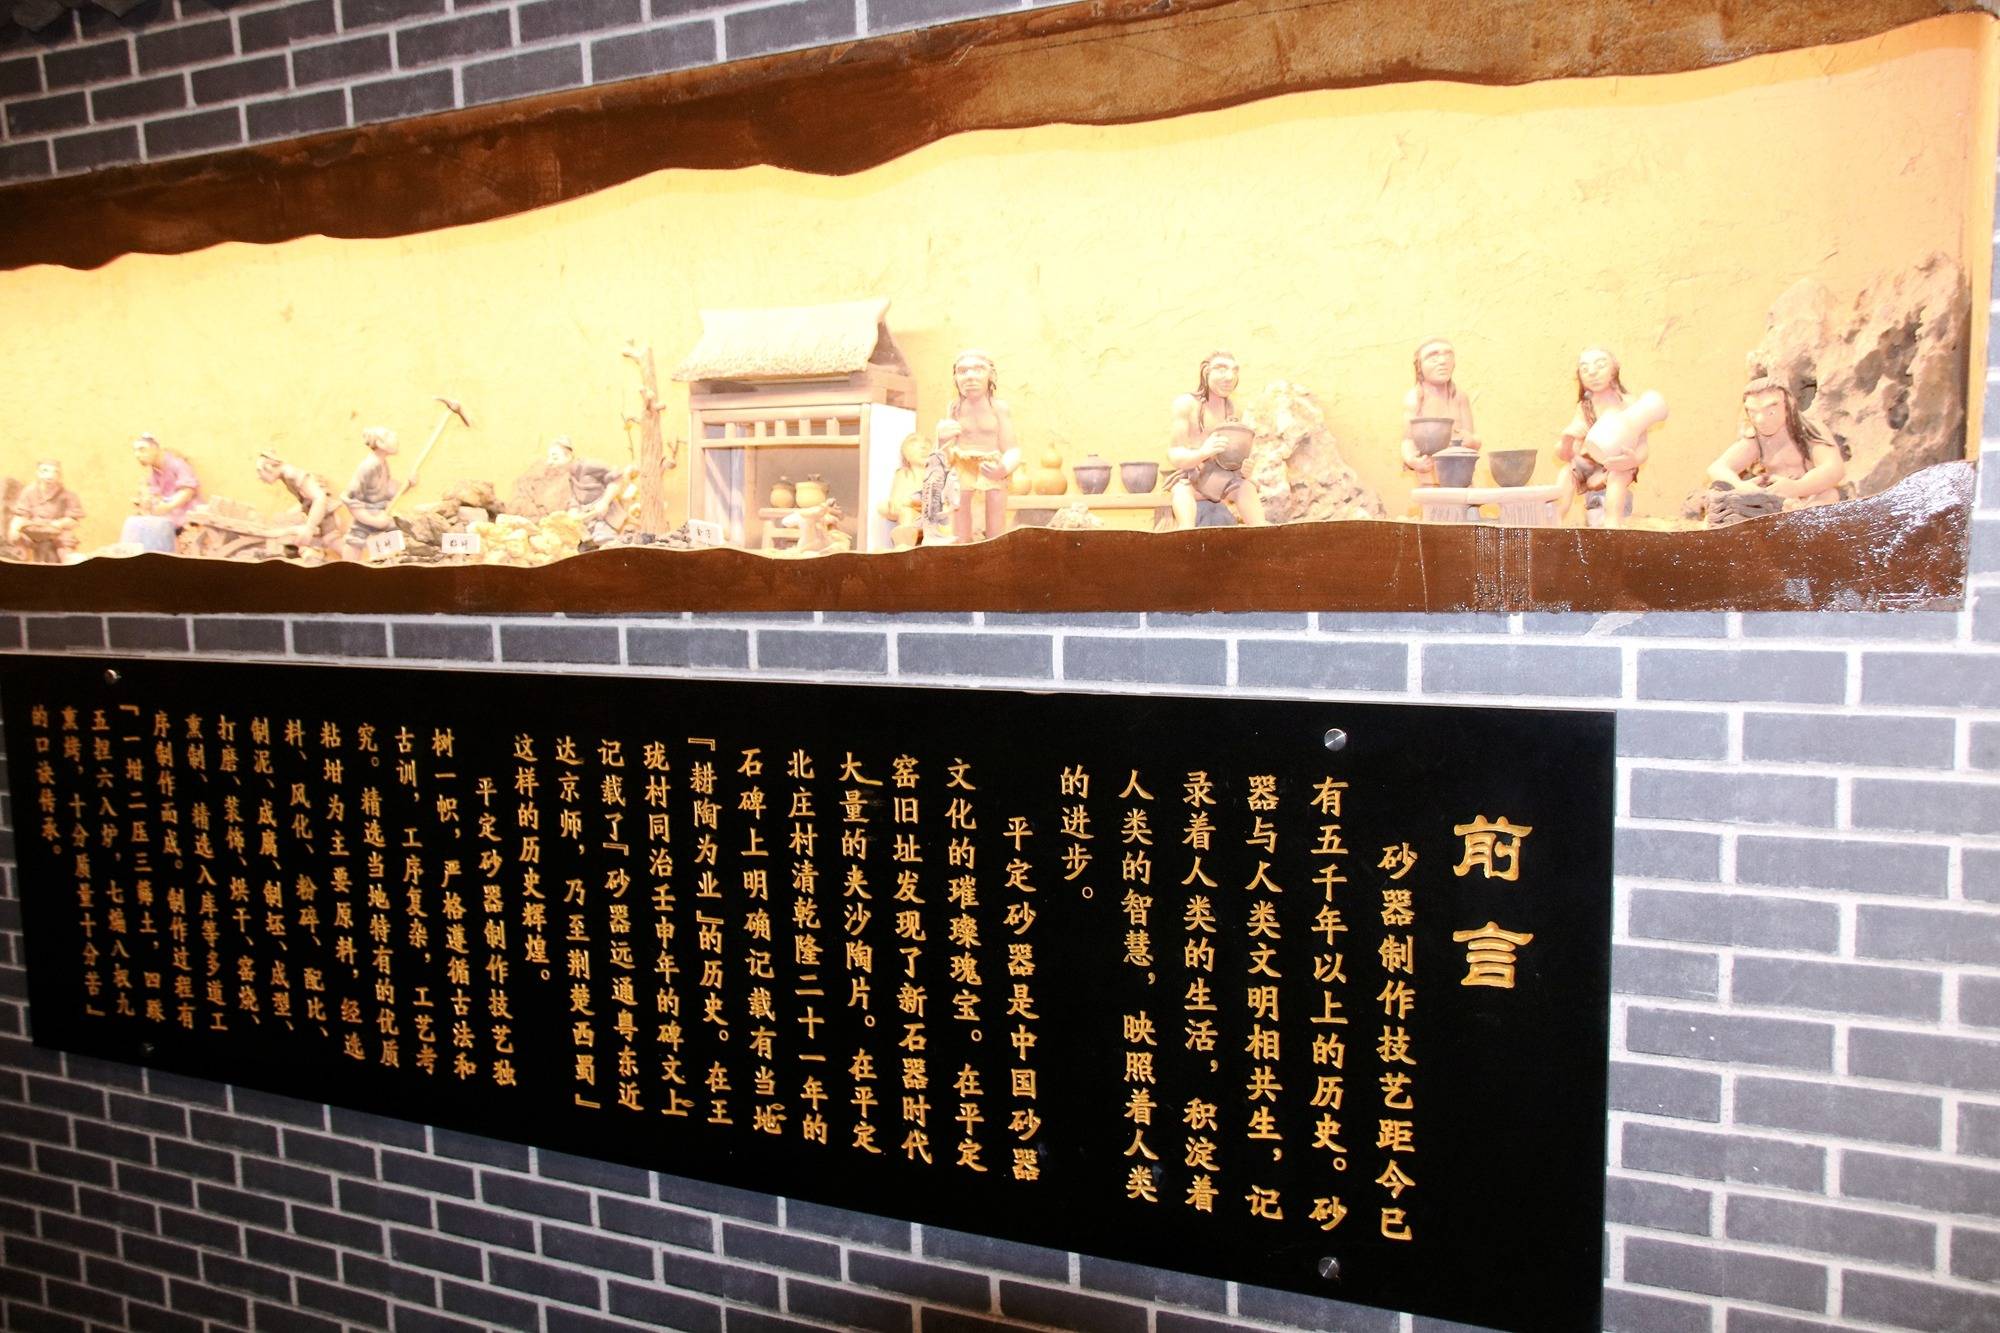 前言
砂器制作技艺距今已
有五千年以上的历史。砂
器与人类文明相共生，记
录着人类的生活，积淀着
人类的智慧，映照着人类
的进步。
平定砂器是中国砂器
文化的璀璨瑰宝。在平定
窑旧址发现了新石器时代
大量的夹沙陶片。在平定
北庄村清乾隆二十一年的
石碑上明确记载有当地
『耕陶为业』的历史。在王
珑村同治壬申年的碑文上
记载了『砂器远通粤东近
达京师，乃至荆楚西蜀』
这样的历史辉煌。
平定砂器制作技艺独
树一帜，严格遵循古法和
古训，工序复杂，工艺考
究。精选当地特有的优质
粘坩为主要原料，经选
料、风化、粉碎、配比、
制泥、成腐、制坯、成型、
打磨、装饰、烘干、窑烧、
熏制、精选入库等多道工
序制作而成。制作过程有
『一坩二压三筛土，四踩
五捏六入炉，七煸八扱九
熏烤，十分质量十分苦』
的口诀传承。